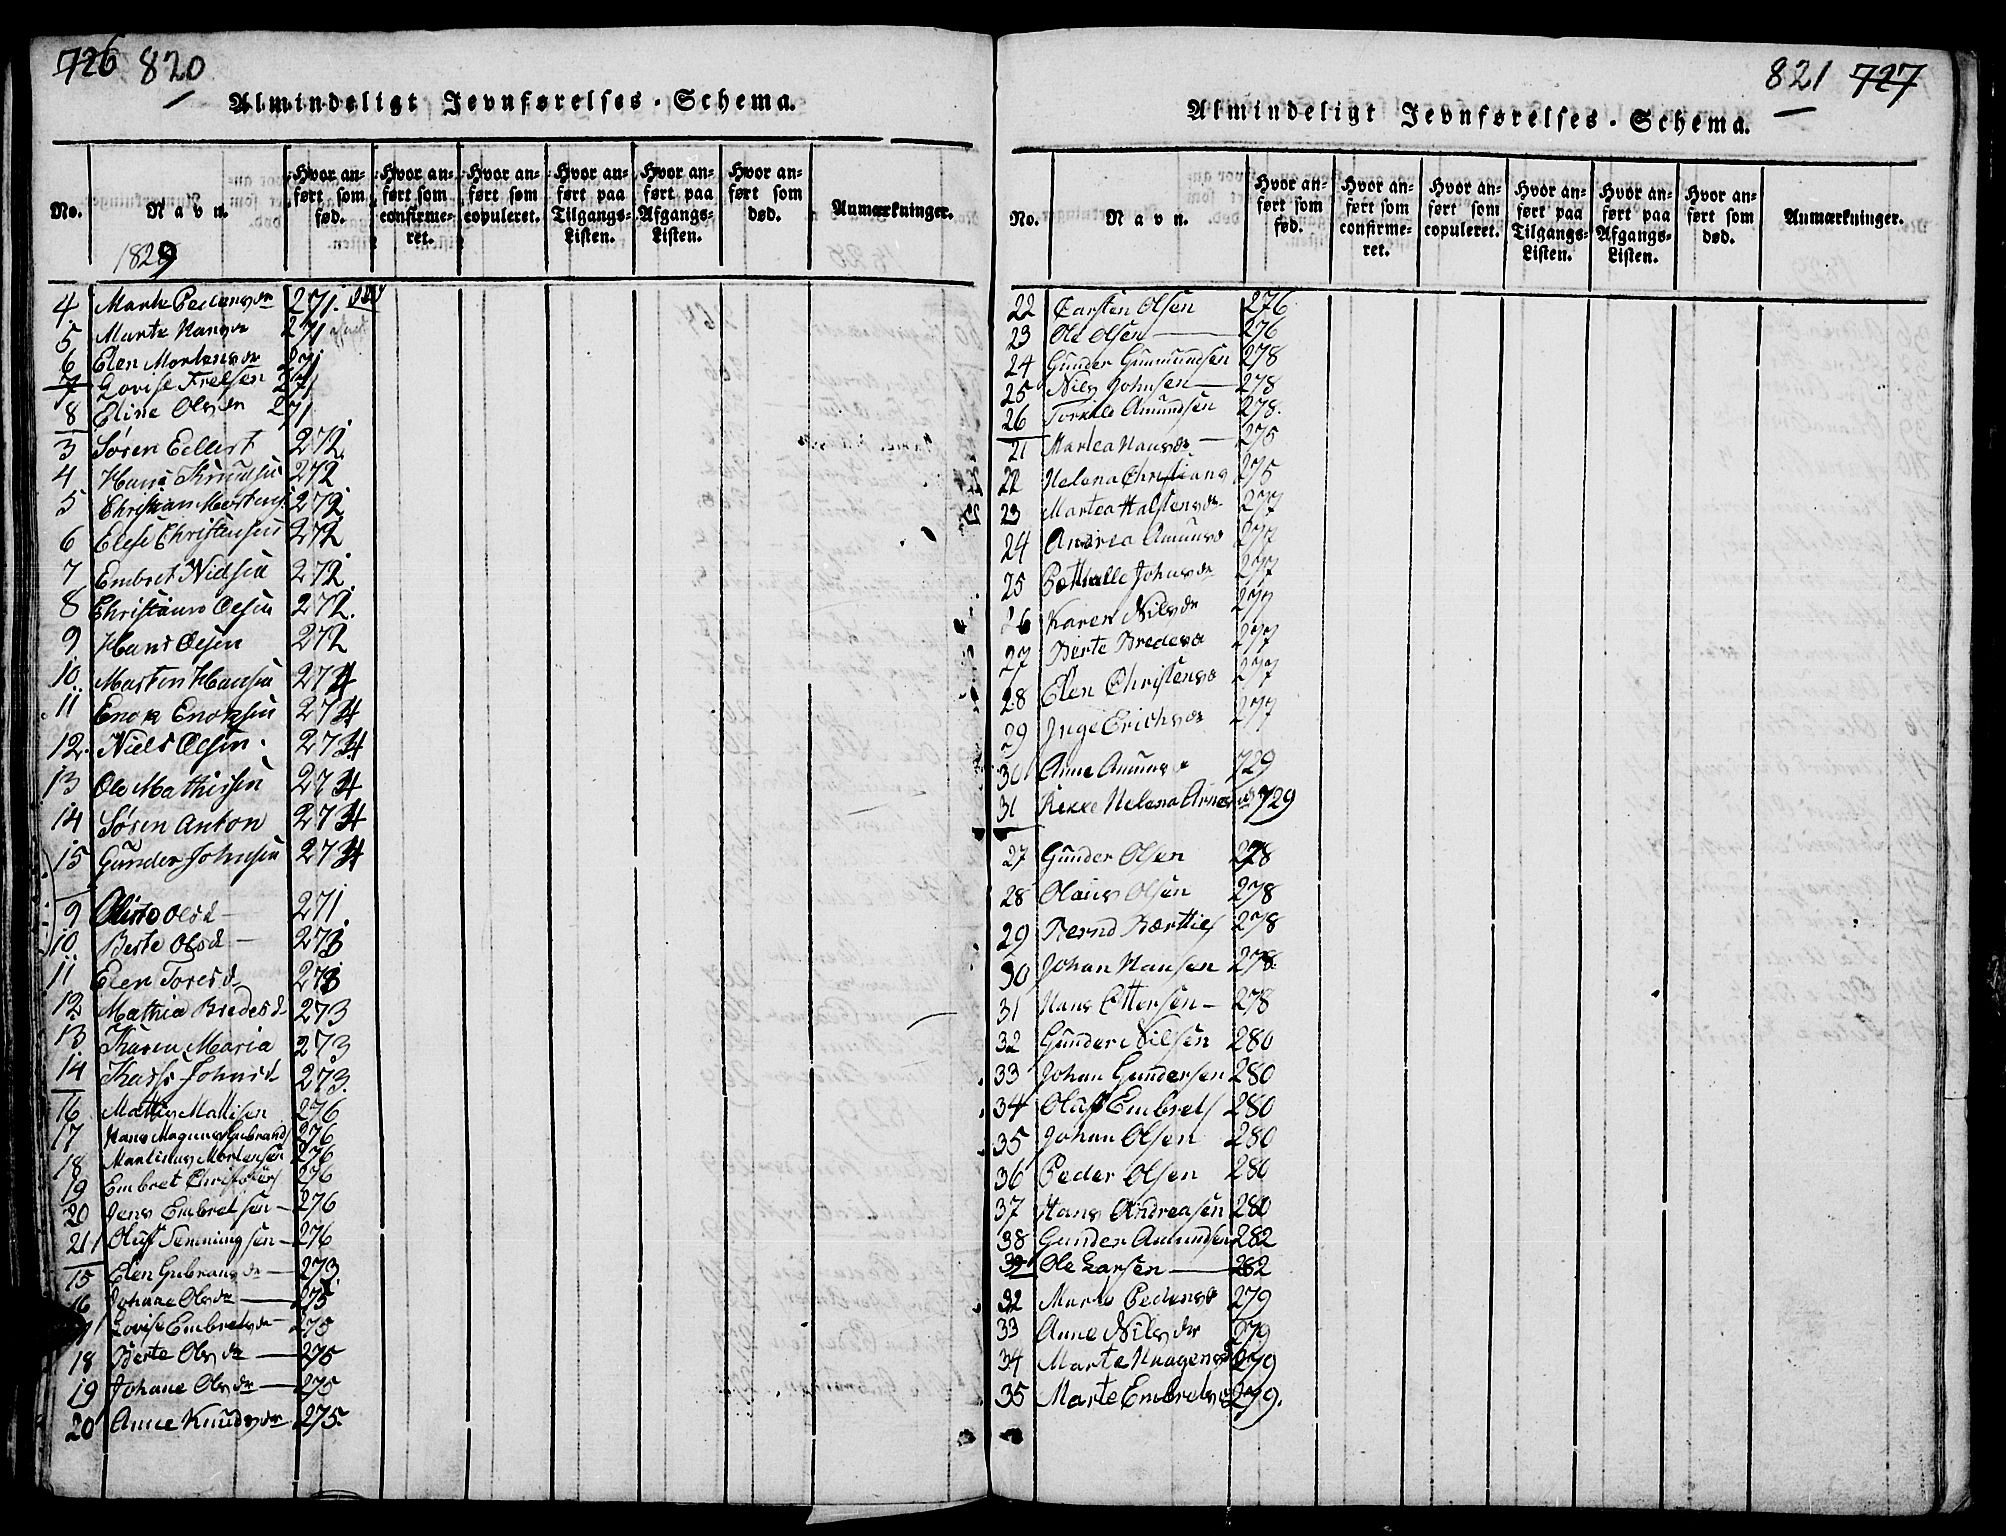 726 820
Almindeligt Jevnførelses-Schema.
No.
Navn.
Hvor anført som fød.
Hvor anført som confirmeret.
Hvor anført som copuleret.
Hvor anført paa Tilgangs-Listen.
Hvor anført paa Afgangs-Listen.
Hvor anført som død.
Anmærkninger.
1829
4 Marte Pedersdr 271.
5 Marte Hansdr 271
6 Elen Mortensdr 271
7 Lovise Frelsen 271
8 Eline Olsdr 271
3 Søren Eellert 272.
4 Hans Knudsen 272
5 Christian Mortens. 272
6 Christiansen 272
7 Embret Nielsen 272
8 Christians Olsen 272.
9 Hans Olsen 272
10 Morten Hansen 274
11 Enok Enoksen 274
12. Niels Olsen. 274
13 Ole Mathissen 274
14 Søren Anton 274
15 Gunder Johnsen 274
9 Olsd 271
10 Berte Olsd 273
11 Elen Toresd 273
12 Mathia Bredesd 273
13 Karen Maria 273
14 Johnsd 273.
16 Mattis Mattisen 276
17 Hans Magnus Gulbrands 276
18 Martinus Mortensen 276
19 Embret Christofers 276
20 Jens Embretsen 276
21 Oluf Semmingsen 276
15 Elen Gubransdr 273
16 Johane Olsdr 275
Lovise Embretsdr 275
18 Berte Olsdr 275
19 Johane Olsdr 275
20 Anne Knudsdr 275.
821 727
Almindeligt Jevnførelses-Schema.
No.
Navn.
Hvor anført som fød.
Hvor anført som confirmeret.
Hvor anført som copuleret.
Hvor anført paa Tilgangs-Listen.
Hvor anført paa Afgangs-Listen.
Hvor anført som død.
Anmærkninger.
22 Carsten Olsen 276
23 Ole Olsen 276
24 Gunder Gunmundsen 278
25 Nils Johnsen 278
26 Torkild Amundsen 278.
21 Martea Hansdr 275
22 Helena Christians 275
23 Martea Halstensdr 277
24 Andrea Amunds 277
25 Pethrelle Johnsdr 277
26 Karen Nilsdr 277
27 Berte Bredesd 277
28 Elen Christensd 277
29 Inge Erichsdr 277
30 Anne Amunds 729
31 Rekke Helena Arnesd 729
27 Gunder Olsen 278
28 Olaus Olsen 278
29 Bernd 278
30 Johan Hansen 278.
31 Hans Ottersen 278
32 Gunder Nilsen 280
33 Johan Gundersen 280
34 Oluf Embrets 280
35 Johan Olsen 280
36 Peder Olsen 280
37 Hans Andreasen 280
38 Gunder Amundsen 282
39 Ole Larsen 282
32 Marte Pedersd 279
33 Anne Nilsdr 279
34 Marte Haagensd 279
35 Marte Embretsd 279.